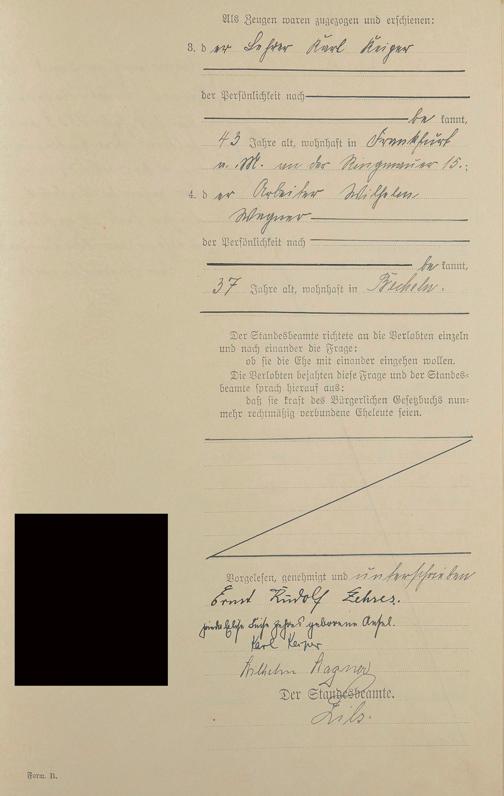 Als Zeugen waren zugezogen und erschienen:
3. d er Lehrer Karl Keiper
der Persönlichkeit nach
be kannt,
43 Jahre alt, wohnhaft in Frankfurt
a. M. an der Ringmauer 15.;
4. d er Arbeiter Wilhelm
Wagner
der Persönlichkeit nach
be kannt,
37 Jahre alt, wohnhaft in Becheln.
Der Standesbeamte richtete an die Verlobten einzeln
und nach einander die Frage:
ob sie die Ehe mit einander eingehen wollen.
Die Verlobten bejahten diese Frage und der Standes-
beamte sprach hierauf aus:
daß sie kraft des Bürgerlichen Gesetzbuchs nun-
mehr rechtmäßig verbundene Eheleute seien.
Vorgelesen, genehmigt und unterschrieben
Ernst Rudolf Zehres.
Luise Zehres geborene
Karl Keiper
Wilhelm Wagner
Der Standesbeamte.
Zils.
Form. B.